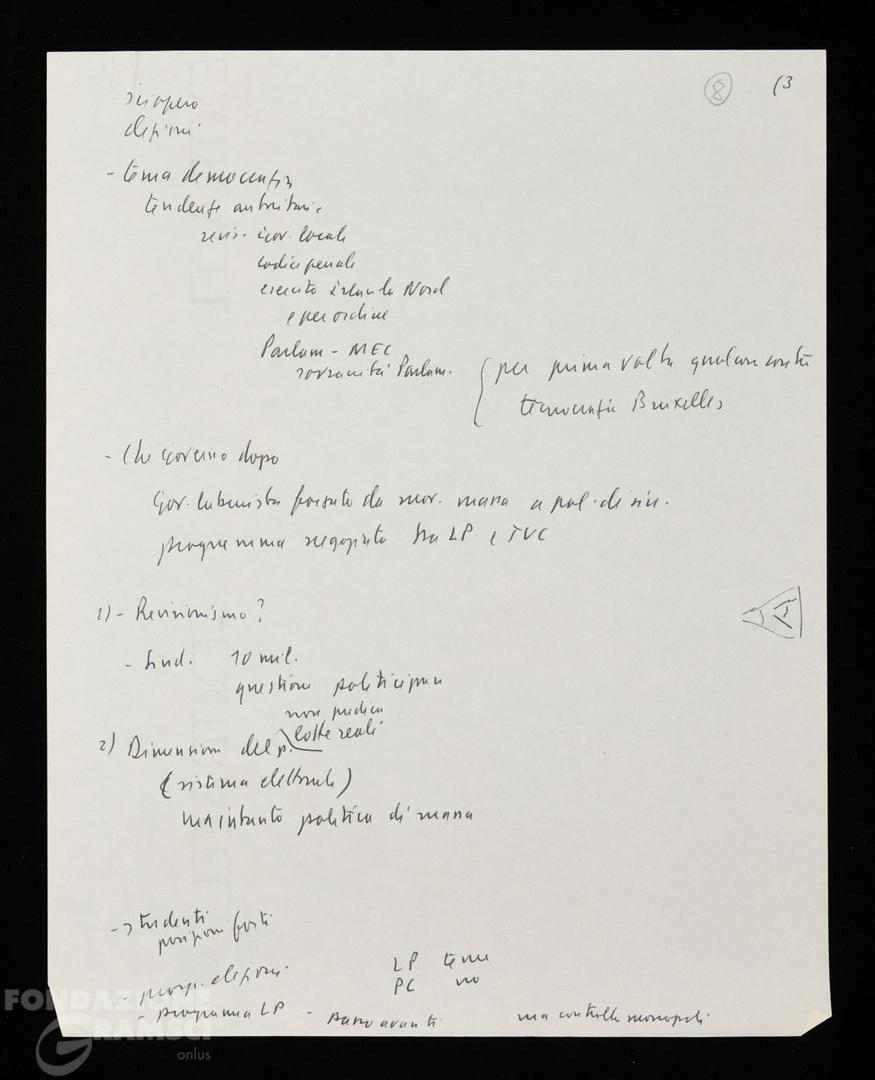 (8) (3
sciopero
elezioni
- tema democrazia
tendenze autoritarie
revis. gov. locale
codice penale
esercito irlanda Nord
e per ordine
Parlam - MEC
sovranità Parlam.
per prima volta qualcun conta
tecnocrazia Bruxelles
- Che governo dopo
Gov. laburista forzato da mov. massa a pol. di sin.
programma negoziato tra LP e TUC
1) - Revisionismo?
- Sind. 10 mil.
questione politici
non
lotte reali
2) Dimensioni del p.
(sistema elettorale)
ma intanto politica di massa
- studenti
posizioni forti
- prosp. elezioni
LP teme
PC no
- programma LP - passo avanti ma controllo monopoli
FONDAZIONE
GRAMSCI
onlus